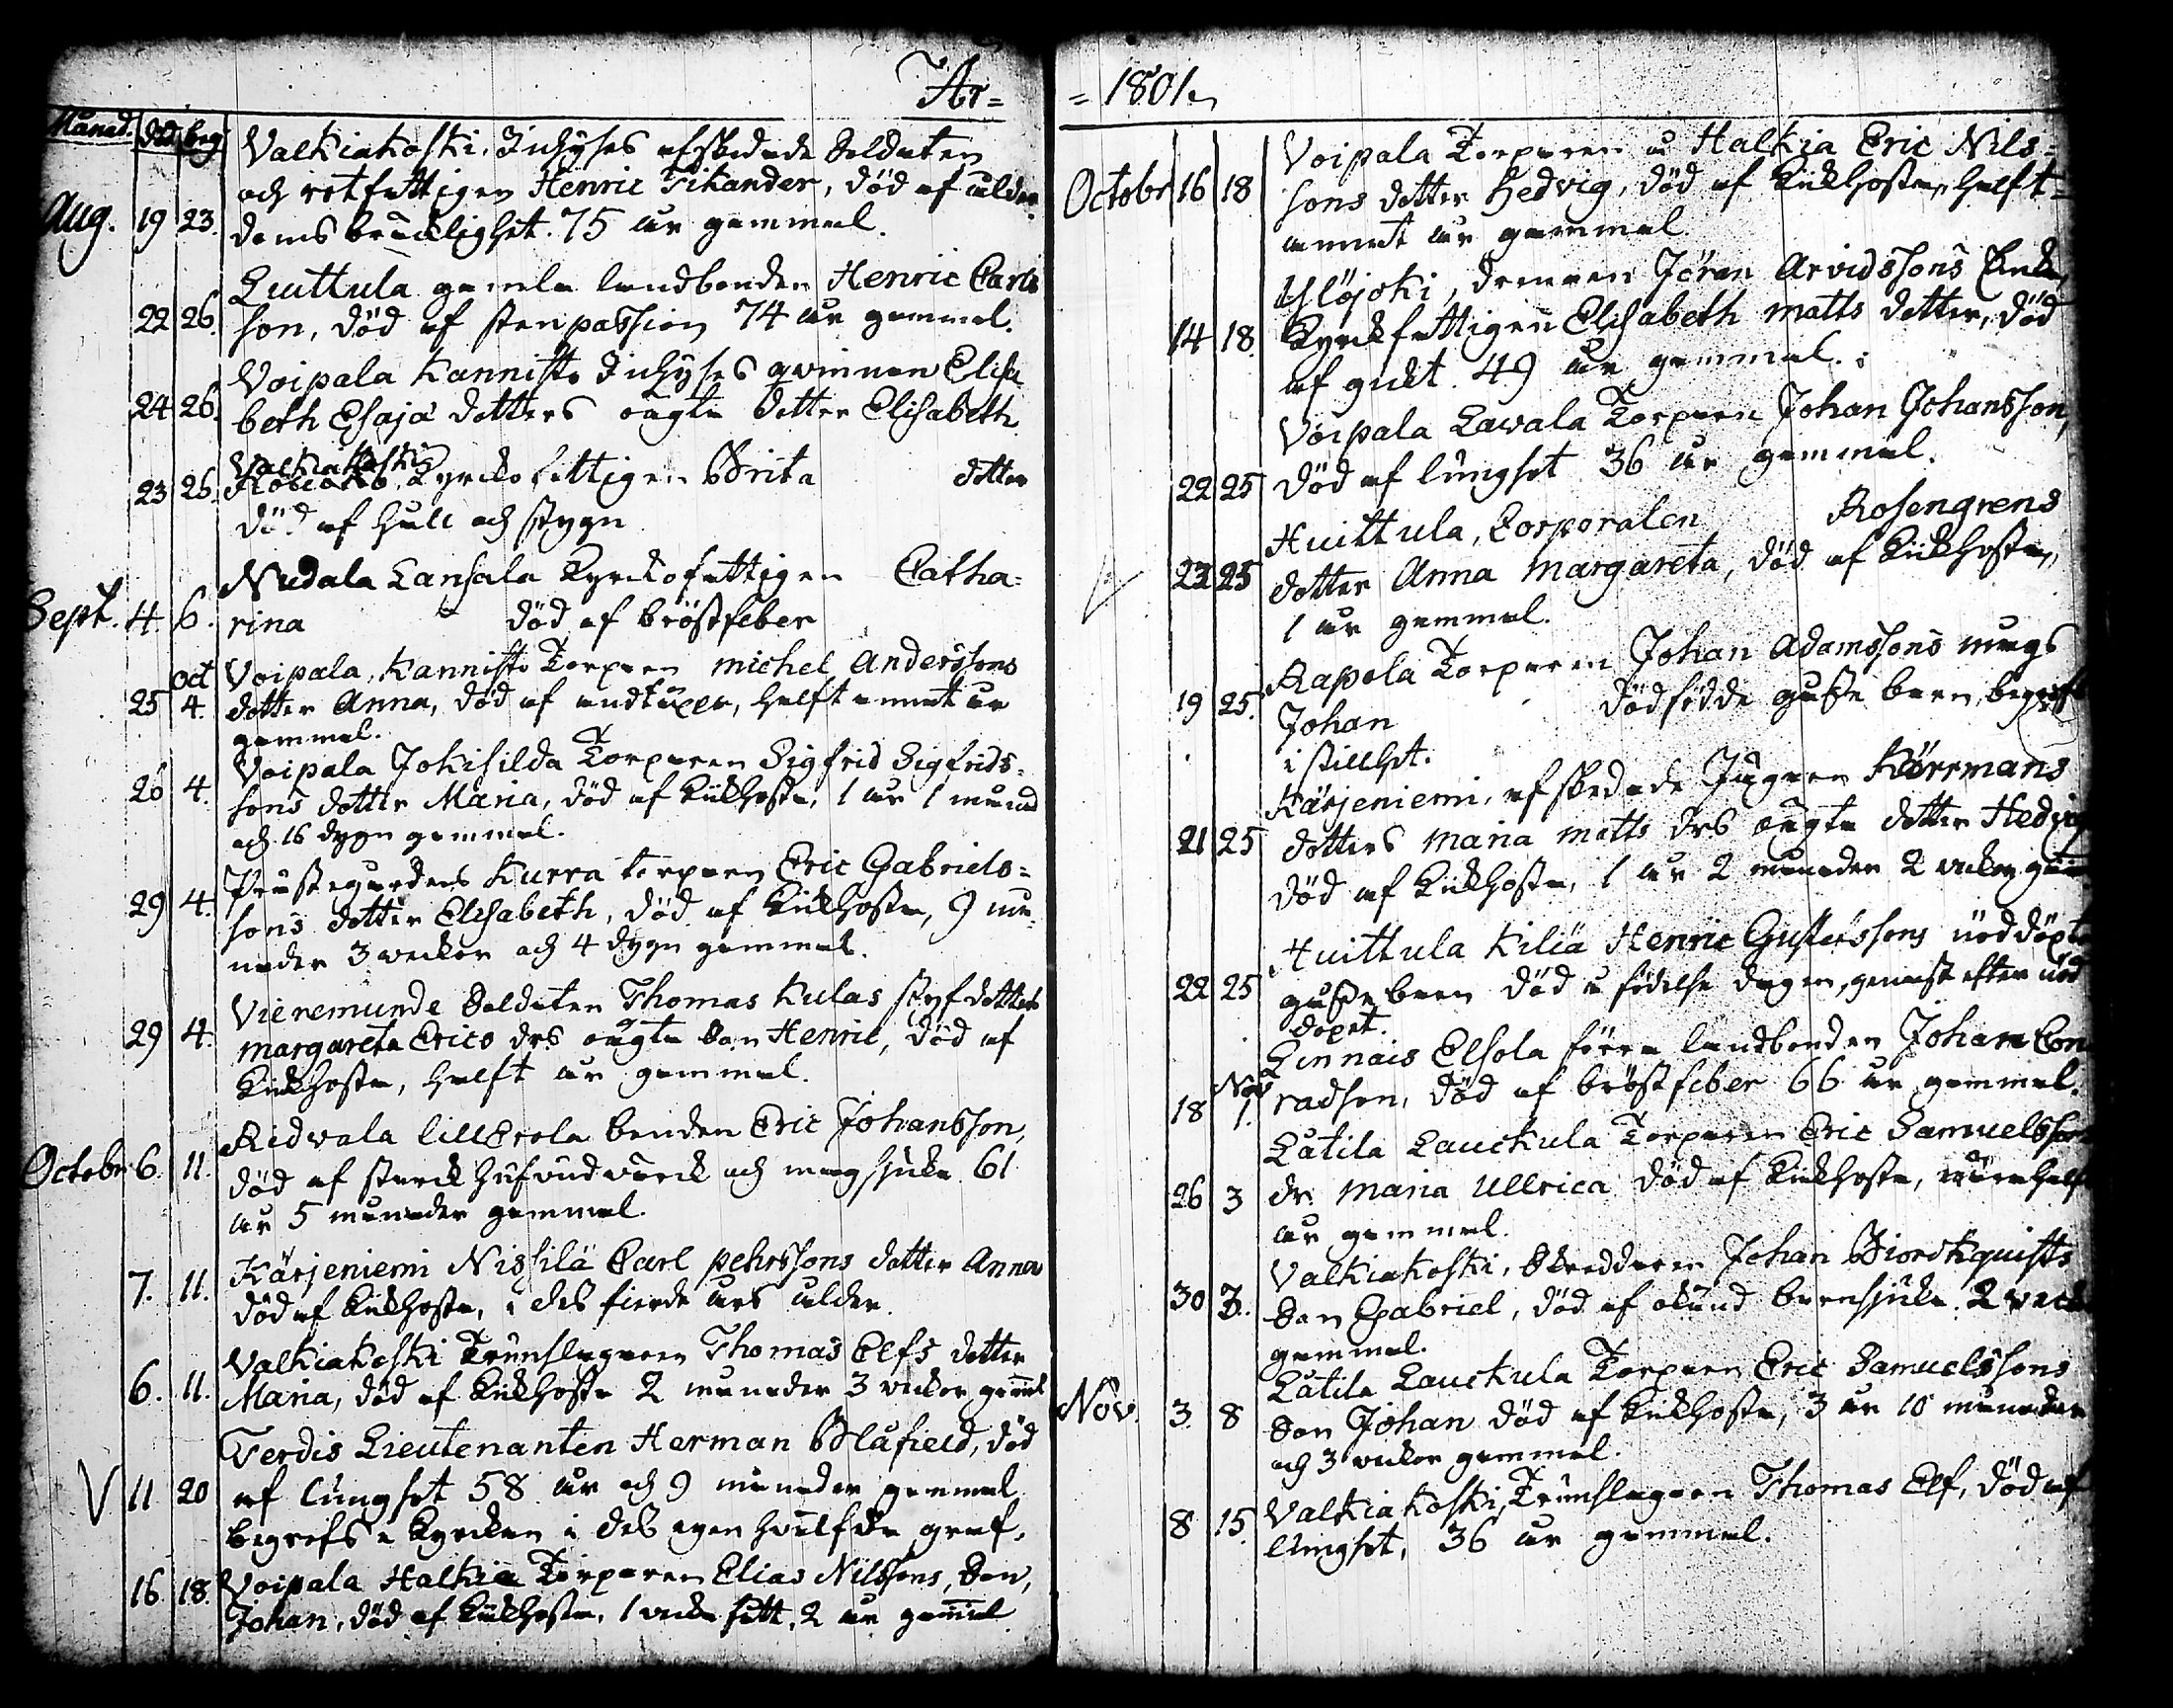 År=
Månad. död beg
Valkiakoski, Inhyses afskedade Soldaten
och rotfattigen Henric Fikander, död af ålder-
Aug. 19 23. doms bräcklighet. 75 år gammal.
Huittula gamla landbonden Henric Carls
22 26. son, död af stenpassion 74 år gammal.
Voipala Kannisto Inhyses qvinnan Elisa
24 26. beth Esajæ dotters oägta dotter Elisabeth
Valkiakoski
23 26. Kyrkofattigen Brita dotter
död af håll och stygn
Nudala Lansala Kyrkofattigen Catha=
Sept. 4. 6. rina död af bröstfeber
oct Voipala, Kannisto Torparen Michel Anderssons
25 4. dotter Anna, död af andtäppa, halft annat år
gammal.
Voipala Johisilda Torparen Sigfrid Sigfrids=
26 4. sons dotter Maria, död af Kikhosta, 1 år 1 månad
och 16 dygn gammal.
Prästegårdens Kurra torparen Eric Gabriels=
29 4. sons dotter Elisabeth, död af Kikhosta, 9 må-
nader 3 veckor och 4 dygn gammal.
Vieremunde Soldaten Thomas Kulas styfdotters
29 4. Margareta Erics drs oägta Son Henric, död af
Kikhosta, halft år gammal.
Ridvala lillErola bonden Eric Johansson,
Octobr 6. 11. död af starck hufvudvärck och magsjuka 61
år 5 månader gammal.
Kärjeniemi Nissilä Carl Pehrssons dotter Anna
7. 11. död af Kikhosta, i des fierde års ålder.
Valkiakoski Trumslagaren Thomas Elfs dotter
6. 11. Maria, död af Kikhosta 2 månader 3 veckor gamal
Terdis Lieutenanten Herman Blåfield, död
V 11 20 af lungsot 58 år och 9 månader gammal
begrofs i Kyrckan i des egen hvälfda graf.
16 18. Voipala Halkia Torparen Elias Nilssons, Son,
Johan, död af Kikhosta, 1 vecka sått, 2 år gamal
= 1801.
Voipala Torparen å Halkia Eric Nils=
Octobr 16 18 sons dotter Hedvig, död af Kikhosta, halft=
annat år gammal.
Ylöjoki, drengen Jöran Arvidssons Enka,
14 18. Kyrckfattigen Elisabeth Matts dotter, död
af gickt. 49 år gammal.
Voipala Lawala Torparen Johan Johansson,
22 25 död af lungsot 36 år gammal.
Huittula, Corporalen Rosengrens
23 25 dotter Anna Margareta, död af Kikhosta,
1 år gammal.
Rapola Torparen Johan Adamssons mågs
19 25. Johan dödfödde gosse barn, begrofs
i stillhet.
Kärjeniemi, afskedade Jägaren Körrmans
21 25 dotters Maria Matts drs oägta dotter Hedvig
död af Kikhosta, 1 år 2 månader 2 veckor gam
Huittula Kiliä Henric Gustafssons nöddöpta
22 25 gosse barn död å födelse dagen, genast efter nöd
döpet.
Linnais Elsola förra landbonden Johan Con
Nov
18 1. radson, död af bröstfeber 66 år gammal.
Låtila Lauckula Torparen Eric Samuelssons
26 3 dr. Maria Ullrica död af Kikhosta,
år gammal.
Valkiakoski, Skreddaren Johan Biorckquists
30 3. Son Gabriel, död af okänd barnsjuka. 2 veck
gammal.
Låtila Lauckula Torparen Eric Samuelssons
Nov. 3 8 Son Johan död af Kikhosta, 3 år 10 månader
och 3 veckor gammal.
Valkiakoski, Trumslagaren Thomas Elf, död af
8 15. lungsot, 36 år gammal.